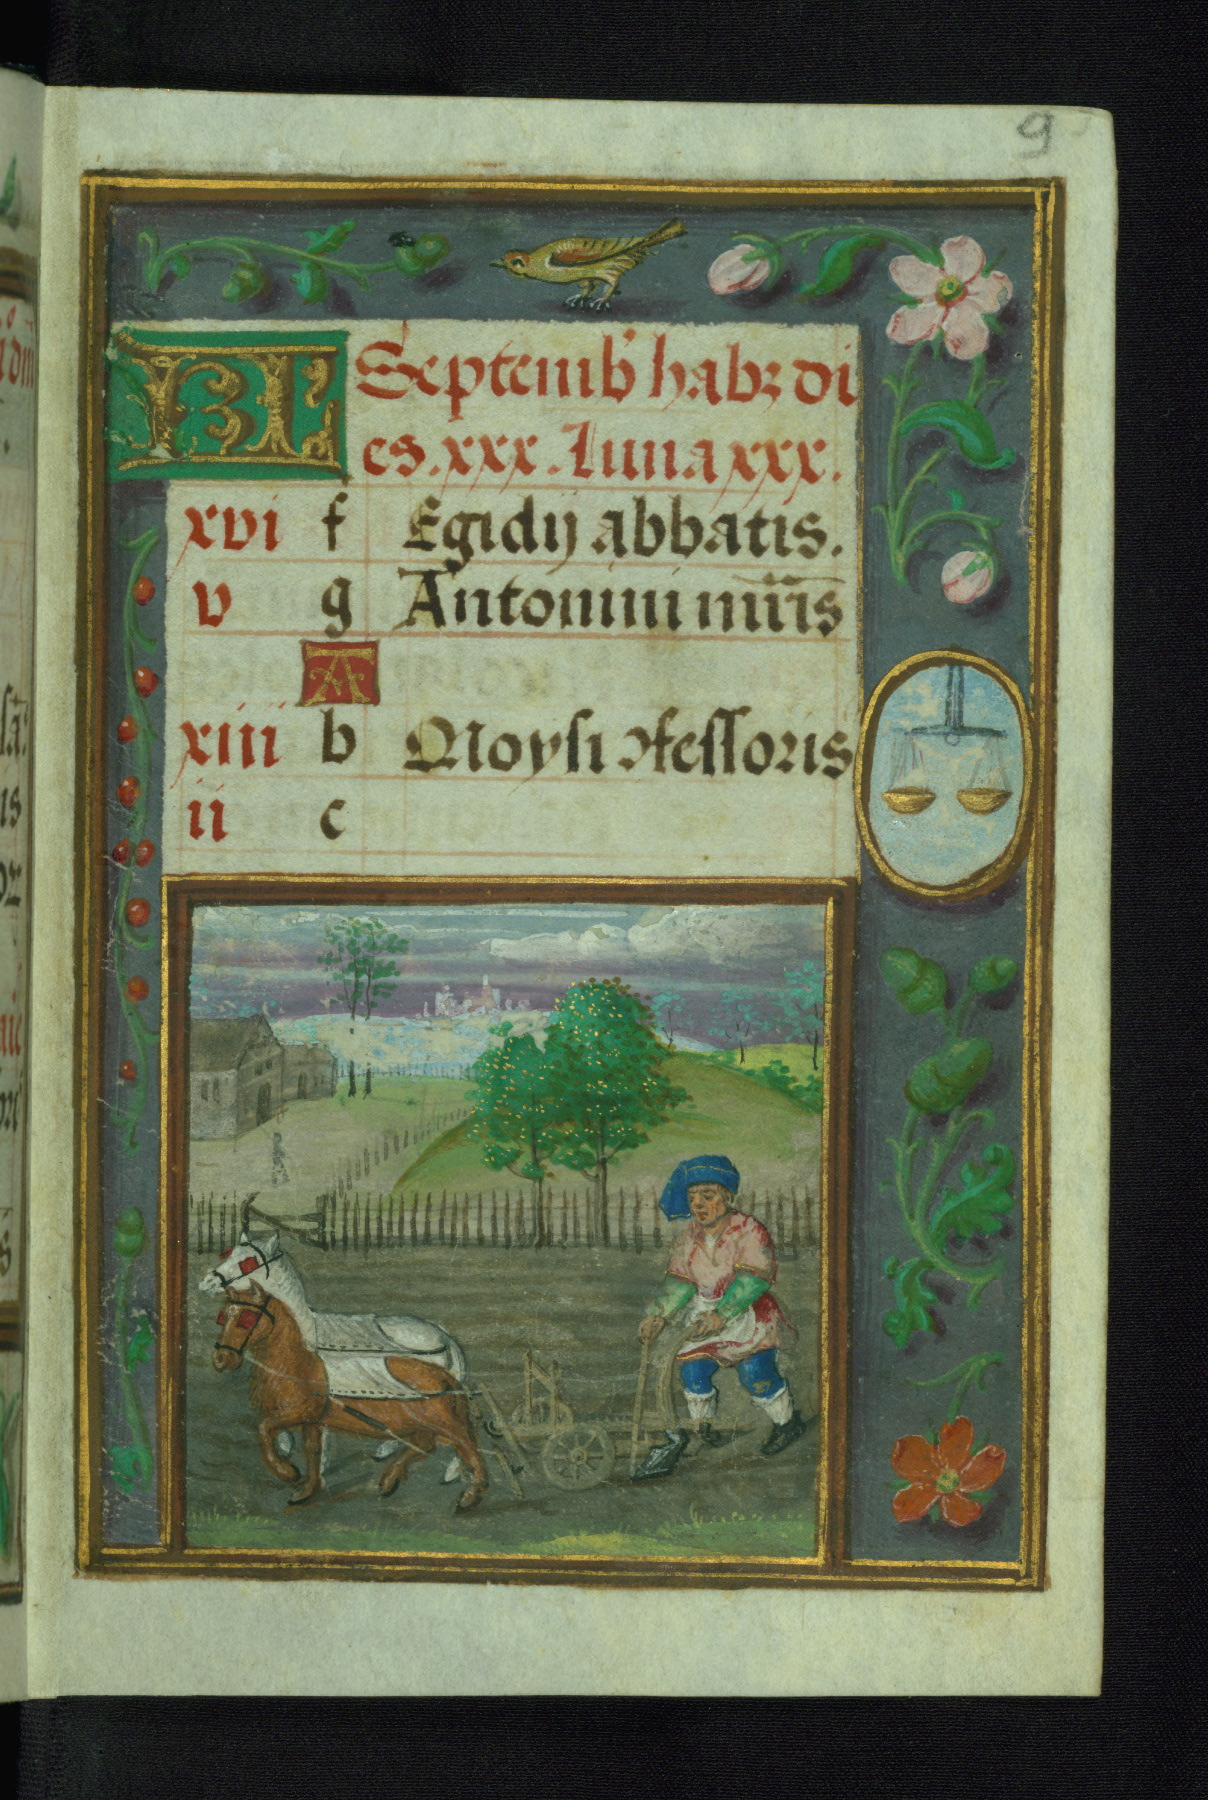 9
KL Septemb̄ habꝫ di
es .xxx. Luna xxx.
xvi f Egidij abbatis.
v g Antonini mr̄is
A
xiiii b Moysi ꝯfessoris
ii c